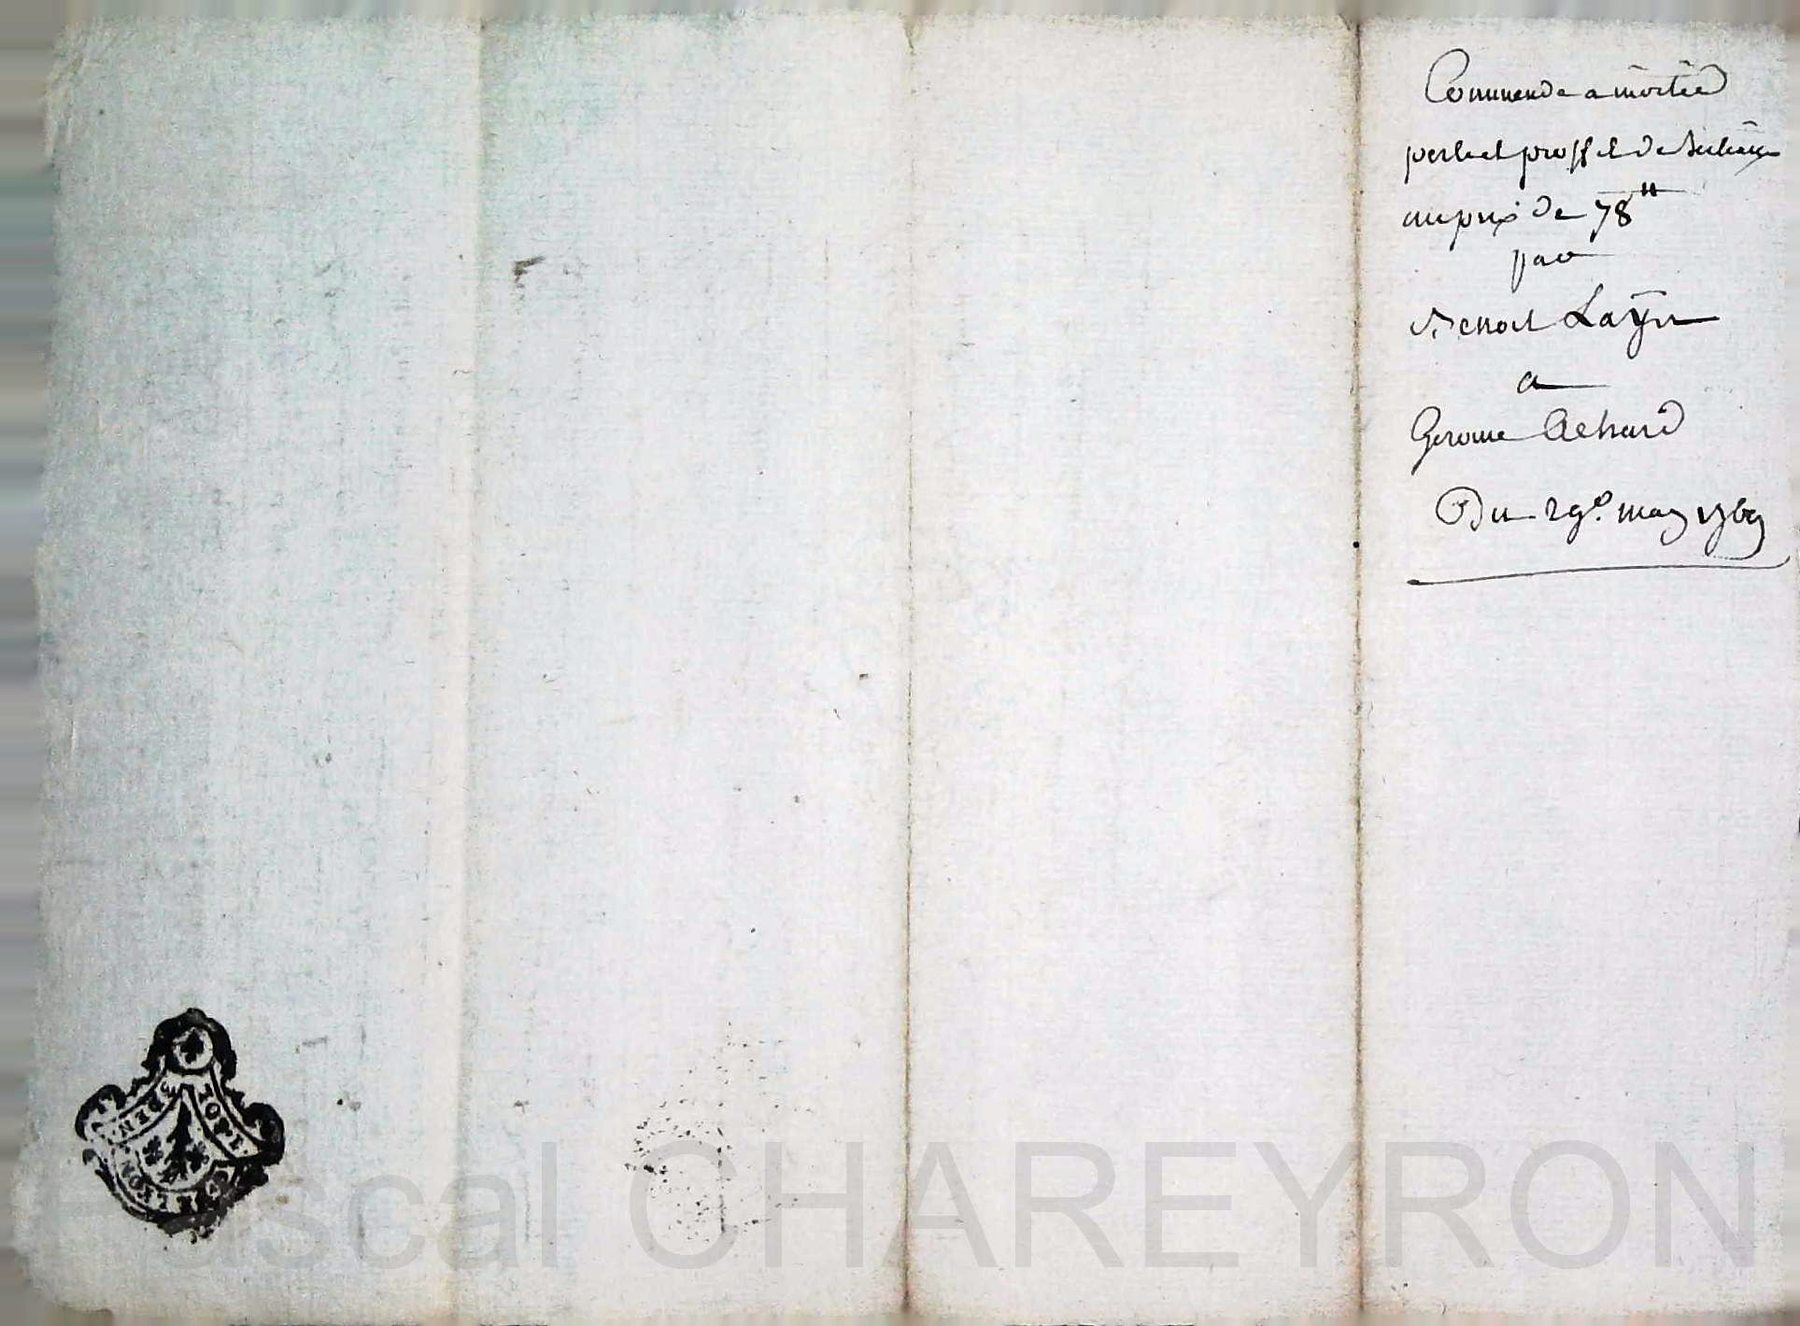 Commende a moitié
perte et proffit de bestiaux
au prix de 78 "
par
Benoit Layn
a
Gerome Achard
Du 29e. may 1769
Pascal CHAREYRON